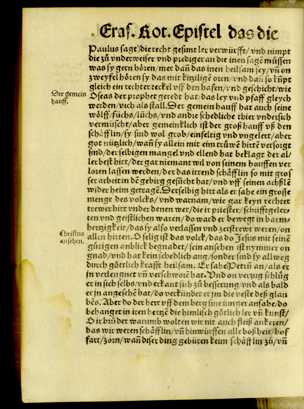 Eras. Rot. Epistel das die
Paulus sagt/die recht gesunt ler verwürfft/vnd nimpt
die zů vnderweiser vnd prediger an die inen sagen müssen
was sy gern hören/mer dañ das inen heilsam sey/vñ on
zweyfel hören sy das mit
gleich ein rechter
Oseas der prophet geredt hat/das ley vnd pfaff gleych
Der gemein
hauff.
werden/vich als stall. Der gemein hauff hat auch seine
wölff/füchs/lüchs/vnd andie schedliche thier vndersich
vermüscht/aber gemeinklich ist der groß hauff vß den
schäfflin/sy sind wol grob einfeltig vnd vngelert/aber
got nützlich/wañ sy allein mit eim trüwē hirtē versorgt
sind/derselbigen mangel vnd ellend hat beklagt der al
ler best hirt/der gar niemant wil von seinem hauffen ver
loren lassen werden/der das irrend schäfflin so mit gros
ser arbeit in dē gebirg gesůcht hat/vnd vff seinen achslē
wider heim getragē. Derselbig hirt als er sahe ein grosse
menge des volcks/vnd warnam/wie gar keyn rechter
trewer hirt vnder denen wer/die it priester/schrifftgeler
ten vnd geistlichen waren/do ward er bewegt in barm
hertzigkeit/das sy also verlassen vnd zerstrewt weren/on
allen hirten. O selig ist das volck/das do Jesus mit seinē
Christus
ansehen.
gütigen anblick begnadet/sein ansehen ist nymmer on
gnad/vnd hat kein schedlich aug/sonder sind sy allweg
durch götlich krafft heilsam. Er sahe Petrū an/als er
in verleugnet vñ verschworē hat. Vnd on verzug schlůg
er in sich selbs/vnd erkant sich zů besserung/vnd als bald
er in angesehē hat/do verkündet er im die veste deß glau
bēs. Aber do der herr vff dem berg sine jünger ansahe/do
behanget in iren hertzē die himlisch götlich ler vñ kunst/
O ir brüder warumb wolten wir nit auch fleiß ankeren/
das wir weren schäfflin/vñ hinwürffen all boßheit/hof
fart/zorn/wañ diser ding gebüren keim schäfflin zů/vñ